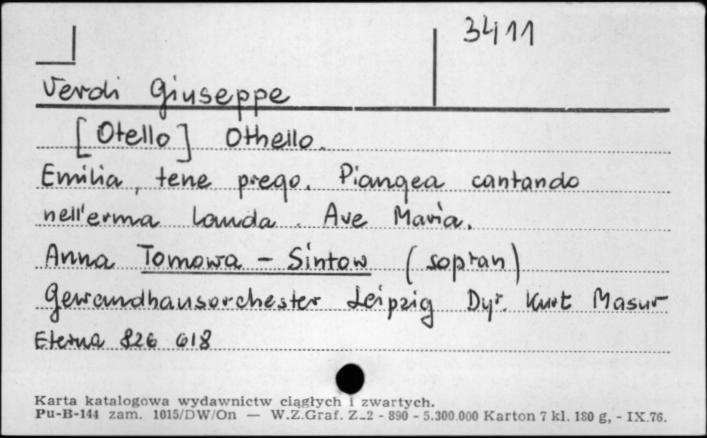 3411
Verdi Giuseppe
[Otello] Othello.
Emilia, tene prego. Piangea cantando
nell'erma landa. Ave Maria.
Anna Tomowa - Sintow (sopran)
Gewandhausorchester Leipzig Dyr. Kurt Masur
Eterna 826 618
Karta katalogowa wydawnictw ciągłych i zwartych.
Pu-B-144 zam. 1015/DW/On — W.Z.Graf. Z-2 - 890 - 5.300.000 Karton 7 kl. 180 g, - IX.76.